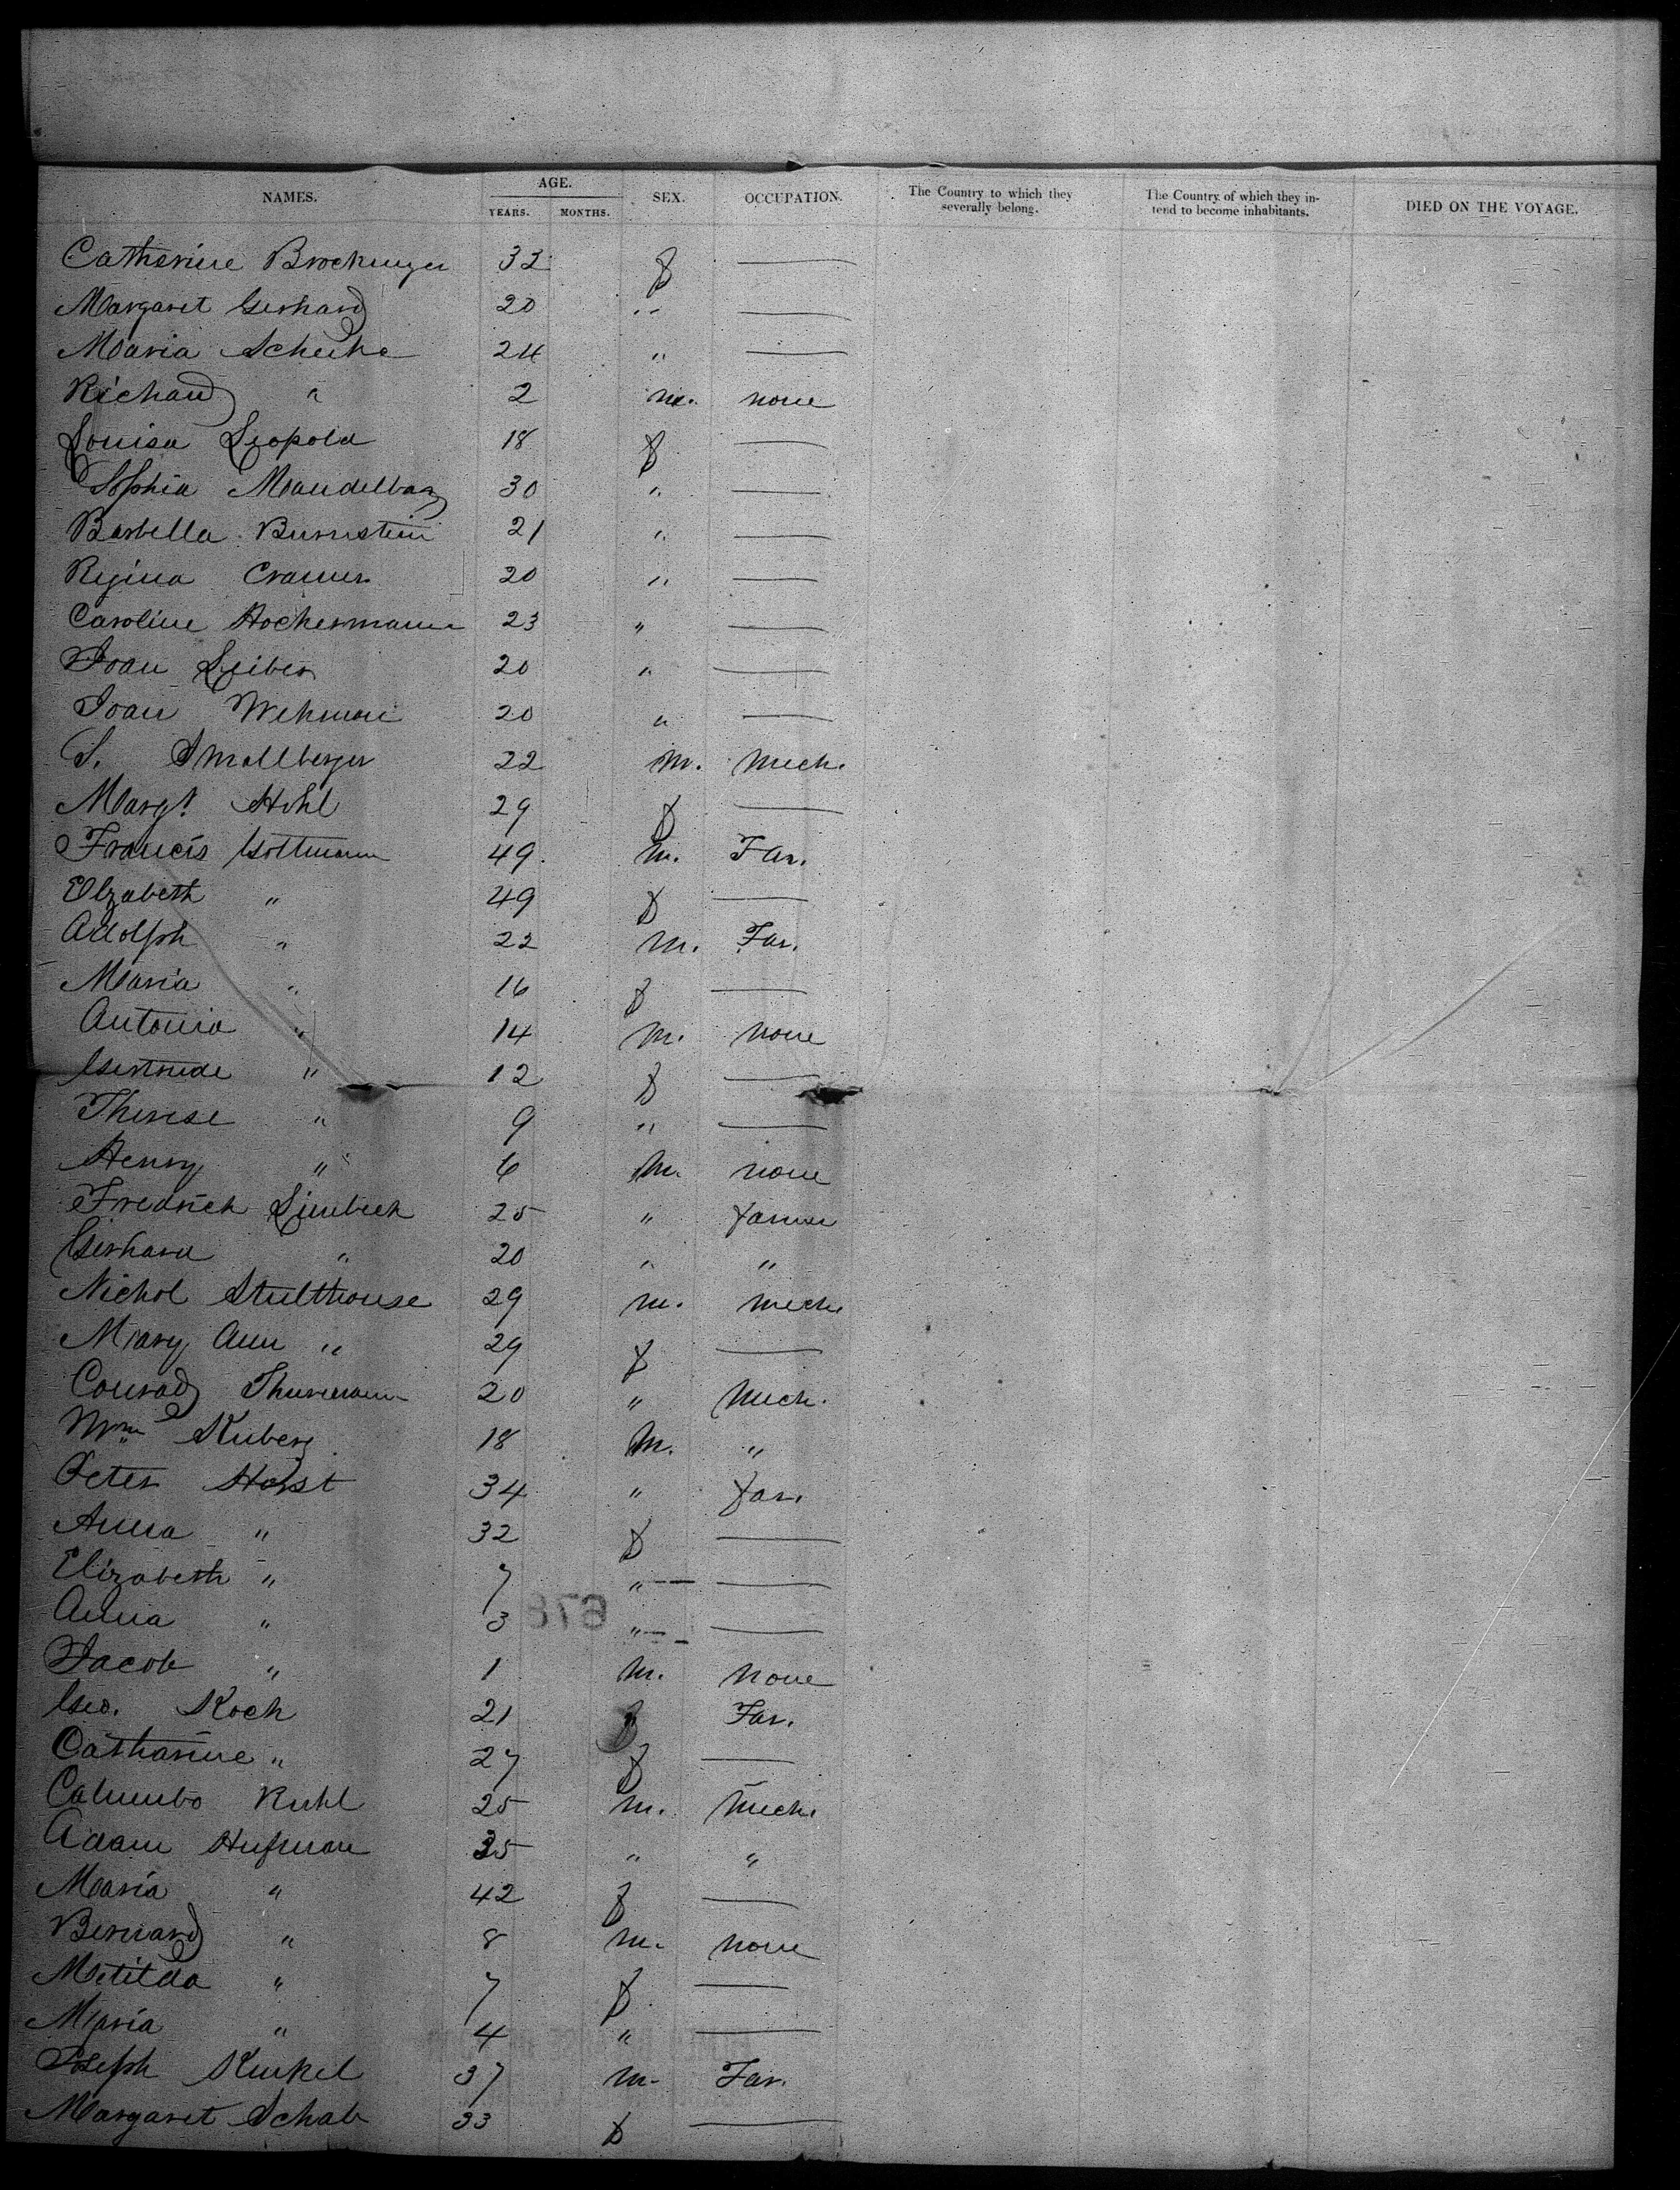 NAMES. AGE. SEX. OCCUPATION. The Country to which they severally belong. The Country of which they intend to become inhabitants. DIED ON THE VOYAGE.
YEARS. MONTHS.
Catherine 32 f —
Margaret Gerhard 20 " —
Maria 24 " —
Richard " 2 m. none
Louisa Leopold 18 f —
Sophia 30 " —
Barbella Burnstein 21 " —
Regina Cramer 20 " —
Caroline Hockermann 23 " —
Joan Leiber 20 " —
Joan Wehman 20 " —
S. Smallberger 22 m. Mech.
Margt. Hohl 29 f —
Francis Gottmann 49. m. Far.
Elzabeth " 49 f —
Adolph " 22 m. Far.
Maria " 16 f —
Antonia " 14 m. none
Gertrude " 12 f —
Therese " 9 " —
Henry " 6 m. none
Fredrick Limbeck 25 " farmer
Gerhard " 20 " "
Nichol Stulthouse 29 m. mech.
Mary Ann " 29 f —
Conrad Thurmann 20 " Mech.
Wm Kuberg 18 m. "
Peter Horst 34 " far.
Anna " 32 f —
Elizabeth " 7 " —
Anna " 3 " —
678
Jacob " 1 m. none
Geo. Koch 21 Far.
Catharine " 27 f —
Columbo Kuhl 25 m. Mech.
Adam Hufman 35 " "
Maria " 42 f —
Bernard " 8 m. none
Metilda " 7 f —
Maria " 4 " —
Joseph Kunkel 37 m. Far.
Margaret Schab 33 f —